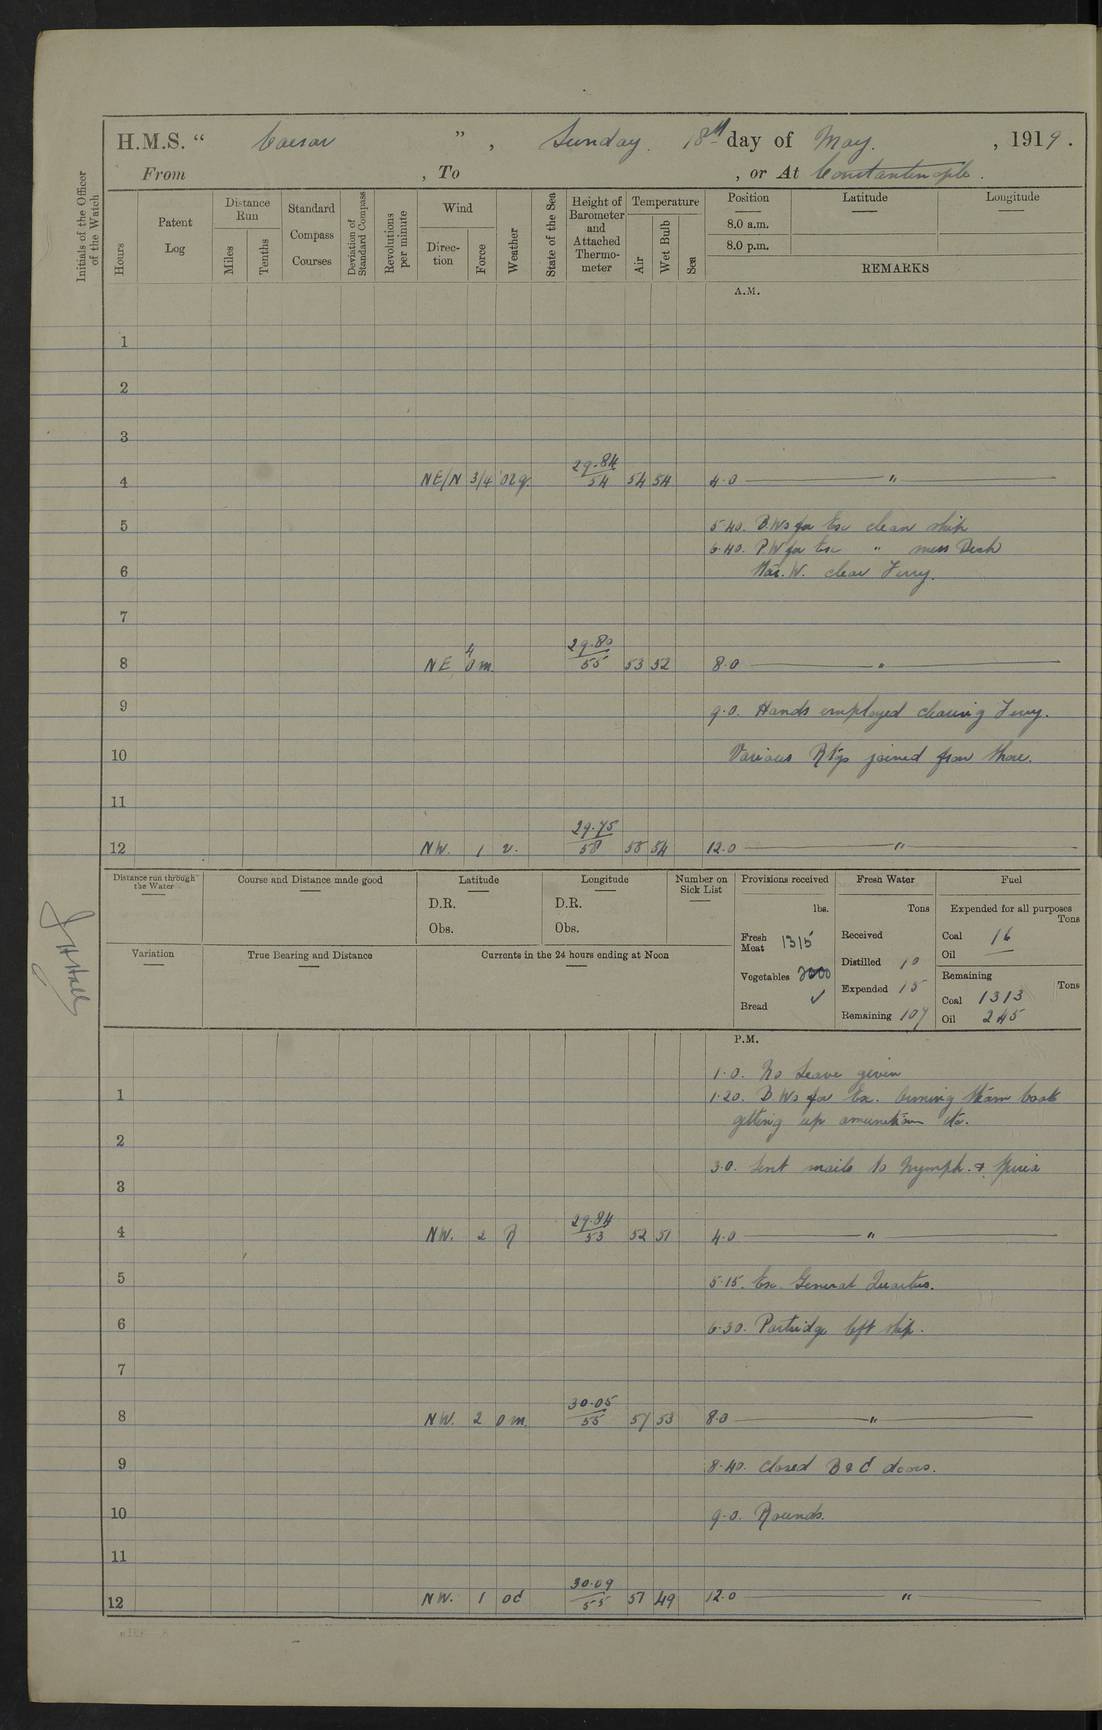 H.M.S. “ Caesar ” , Sunday. 18th day of May. , 1919.
From , To , or At Constantinople.
Initials of the Officer of the Watch
Hours
Patent Log
Distance Run
Miles
Tenths
Standard Compass Courses
Deviation of Standard Compass
Revolutions per minute
Wind
Direc-tion
Force
Weather
State of the Sea
Height of Barometer and Attached Thermo-meter
Temperature
Air
Wet Bulb
Sea
Position Latitude Longitude
8.0 a.m.
8.0 p.m.
REMARKS
A.M.
1
2
3
4 NE/N 3/4 29.84 54 54 54 4.0 "
5 5.40. B.Ws for Ex clean ship
6.40. P.W for Ex " mess Deck
6 Mar. W. clear Ferry.
7
8 NE 4 o m. 29.80 55 53 52 8.0 "
9 9.0. Hands employed clearing Ferry.
10 Various Rtgs joined from shore.
11
12 NW. 1 v. 29.75 58 58 54 12.0 "
Distance run through the Water
Course and Distance made good
Latitude
D.R.
Obs.
Longitude
D.R.
Obs.
Number on Sick List
Variation
True Bearing and Distance
Currents in the 24 hours ending at Noon
Provisions received
lbs.
Fresh Meat 1315
Vegetables 2000
Bread ✓
Fresh Water
Tons
Received
Distilled 10
Expended 15
Remaining 107
Fuel
Expended for all purposes
Tons
Coal 16
Oil —
Remaining
Tons
Coal 1313
Oil 245
P.M.
1.0. No Leave given
1 1.20. B.Ws for Ex. coming steam boats
getting up amunition etc.
2
3.0. Sent mails to Nymph. &
3
4 NW. 2 R 29.84 53 52 51 4.0 "
5 5.15. Ex. General Quarters.
6 6.30. Partridge left ship.
7
8 NW. 2 o m. 30.05 55 57 53 8.0 "
9 8.40. Closed B & C doors.
10 9.0. Rounds.
11
12 NW. 1 od 30.09 55 51 49 12.0 "